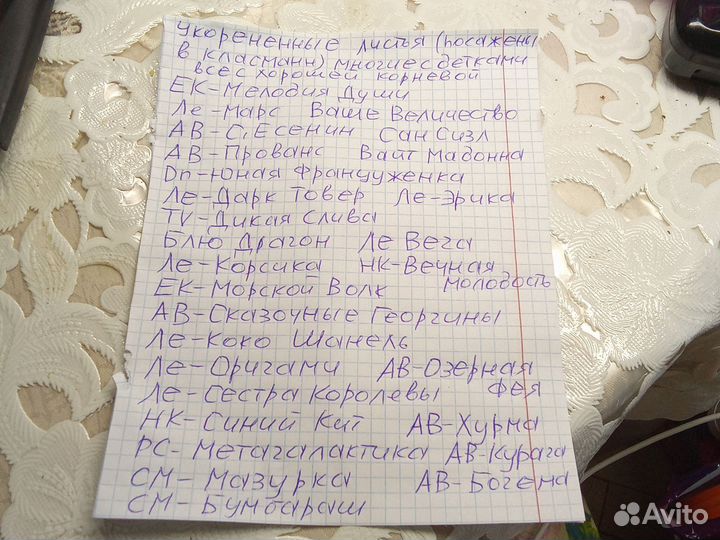 Укорененные листья (посажены
в класманн) многие с детками
все с хорошей корневой
ЕК-Мелодия Души
Ле-Марс Ваше Величество
АВ-С, Есенин Сан Сизл
АВ-Прованс Вайт Мадонна
Dn-Юная Француженка
Ле-Дарк Товер Ле-Эрика
TV-Дикая Слива
Блю Драгон Ле Вега
Ле-Корсика НК-Вечная
Молодость
ЕК-Морской Волк
АВ-Сказочные Георгины
Ле-Коко Шанель
Ле-Оригами АВ-Озерная
Фея
Ле-Сестра Королевы
НК-Синий Кит АВ-Хурма
РС-Метагалактика АВ-Курага
СМ-Мазурка АВ-Богема
СМ-Бумбараш
Avito